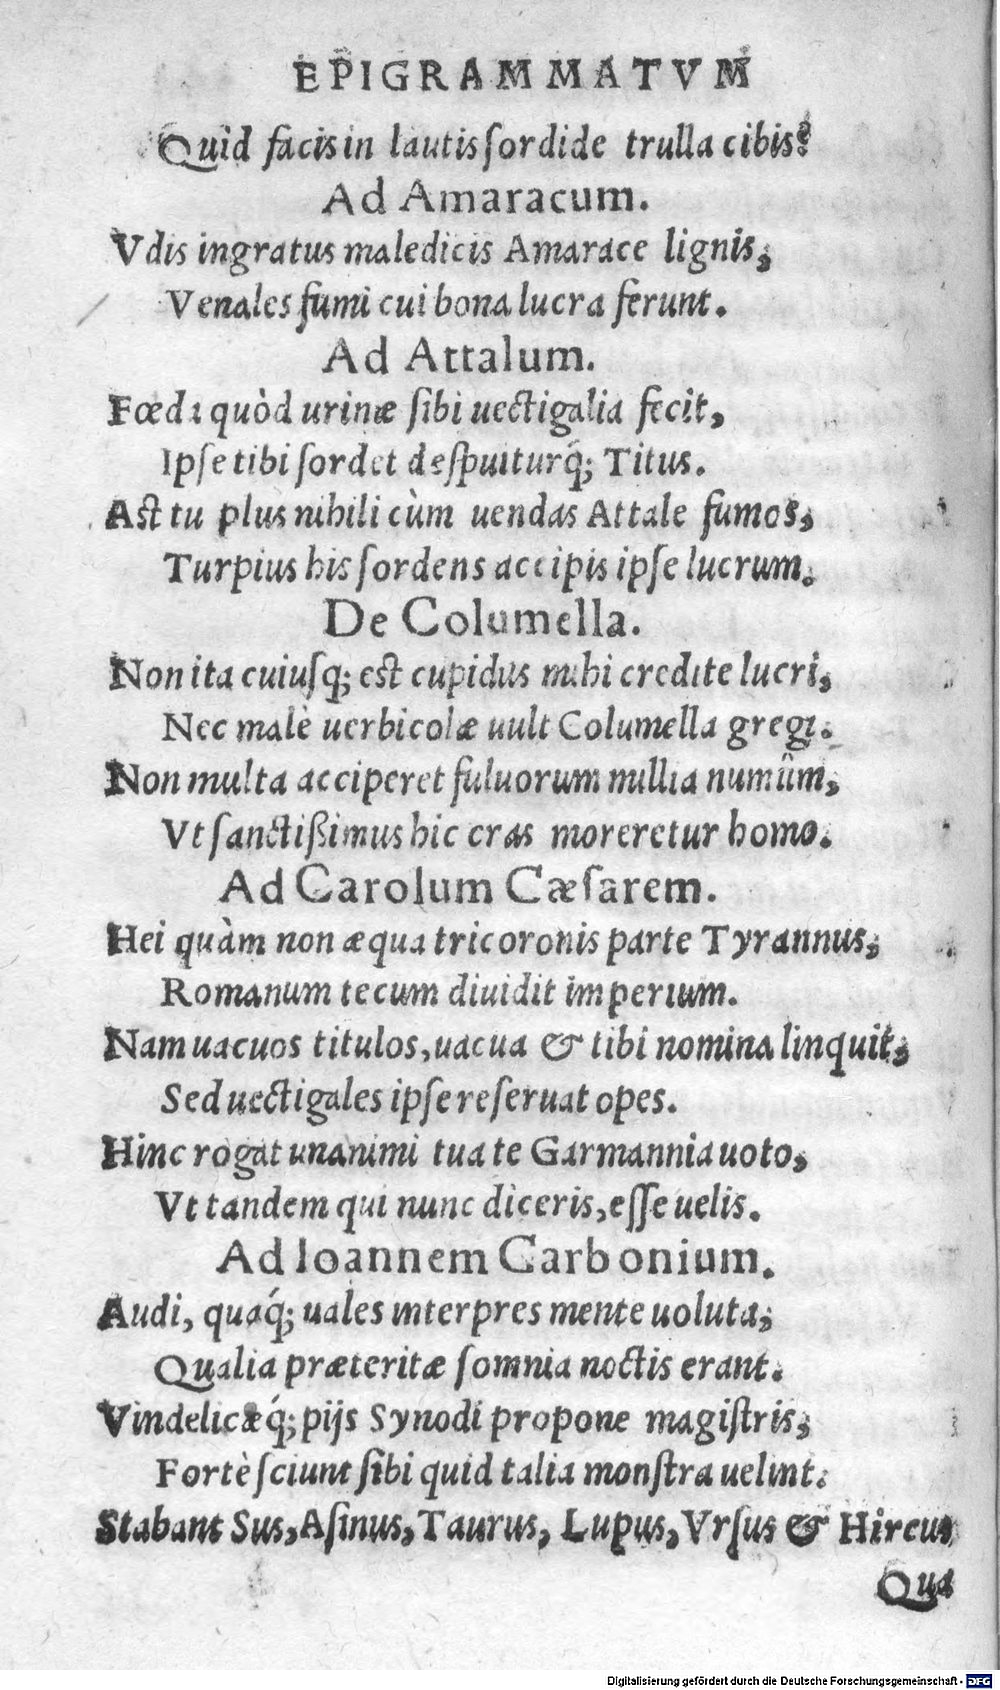 EPIGRAMMATVM
Quìd facis in lautis ſordide trulla cibis?
Ad Amaracum.
Vdis ingratus maledicis Amarace lignis,
Venales fumi cui bona lucra ferunt.
Ad Attalum.
Fœda quòd urinæ ſibi uectigalia fecit,
Ipſe tibi ſordet deſpuiturq́; Titus.
Aſt tu plus nihili cùm uendas Attale fumos,
Turpius his ſordens accipis ipſe lucrum.
De Columella.
Non ita cuiuſq; eſt cupidus mihi credite lucri,
Nec malè uerbicolæ uult Columella gregi.
Non multa acciperet fuluorum millia numûm,
Vt ſanctißimus hic cras moreretur homo.
Ad Carolum Cæſarem.
Hei quàm non æqua tricoronis parte Tyrannus,
Romanum tecum diuidit imperium.
Nam uacuos titulos, uacua & tibi nomina linquit,
Sed uectigales ipſe reſeruat opes.
Hinc rogat unanimi tua te Garmannia uoto,
Vt tandem qui nunc dìceris, eſſe uelis.
Ad Ioannem Carbonium.
Audi, quaq́; uales interpres mente uoluta,
Qualia præteritæ ſomnia noctis erant.
Vindelicæq́; pijs Synodi propone magiſtris,
Fortè ſciunt ſibi quid talia monſtra uelint.
Stabant Sus, Aſinus, Taurus, Lupus, Vrſus & Hircus
Qua
Digitalisierung gefördert durch die Deutsche Forschungsgemeinschaft - DFG